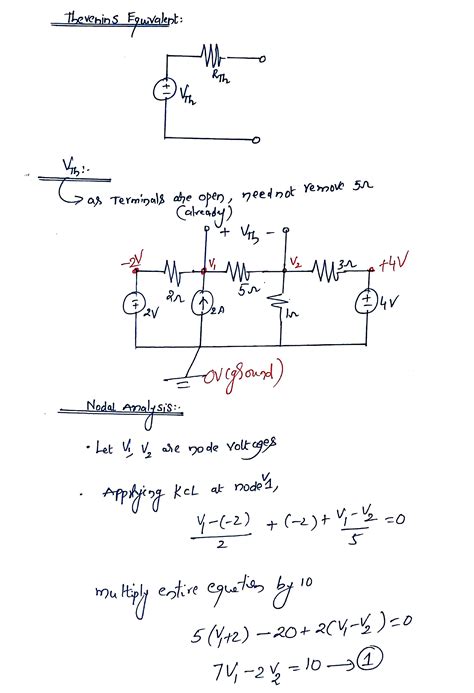 Thevenins Equivalent:
R_Th
V_Th
V_Th:-
as Terminals are open, need not remove 5Ω
(already)
+ V_Th -
-2V V_1 V_2 3Ω +4V
2Ω 5Ω
2V 2A 1Ω 4V
0V (ground)
Nodal Analysis:-
· Let V_1 V_2 are node voltages
· Applying KCL at node V_1,
(V_1-(-2))/2 + (-2) + (V_1-V_2)/5 = 0
multiply entire equation by 10
5(V_1+2) - 20 + 2(V_1-V_2) = 0
7V_1 - 2V_2 = 10 → ①